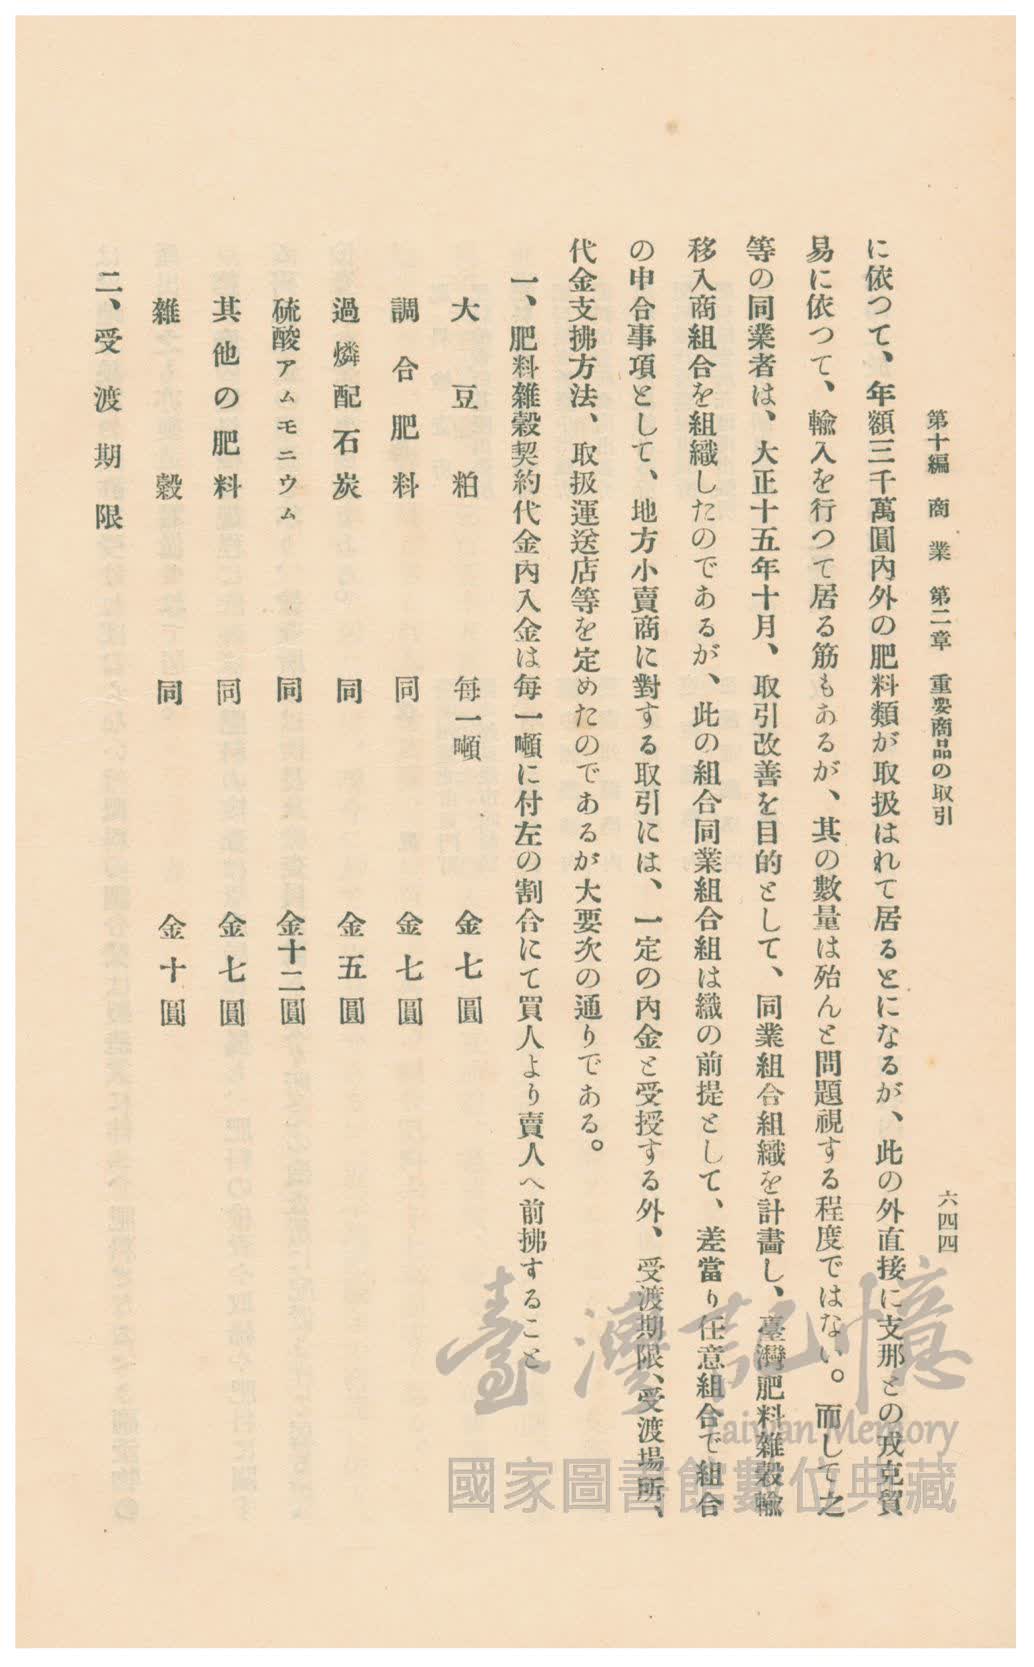 第十編 商業 第二章 重要商品の取引
六四四
に依つて、年額三千萬圓內外の肥料類が取扱はれて居るとになるが、此の外直接に支那との戎克貿
易に依つて、輸入を行つて居る筋もあるが、其の數量は殆んと問題視する程度ではない。而して之
等の同業者は、大正十五年十月、取引改善を目的として、同業組合組織を計畵し、臺灣肥料雜穀輸
移入商組合を組織したのであるが、此の組合同業組合組は織の前提として、差當り任意組合で組合
の申合事項として、地方小賣商に對する取引には、一定の內金と受授する外、受渡期限、受渡場所、
代金支拂方法、取扱運送店等を定めたのであるが大要次の通りである。
一、肥料雜穀契約代金內入金は每一噸に付左の割合にて買人より賣人へ前拂すること
大豆粕 每一噸 金七圓
調合肥料 同 金七圓
過燐配石炭 同 金五圓
硫酸アムモニウム 同 金十二圓
其他の肥料 同 金七圓
雜穀 同 金十圓
二、受渡期限
臺灣記憶
Taiwan Memory
國家圖書館數位典藏